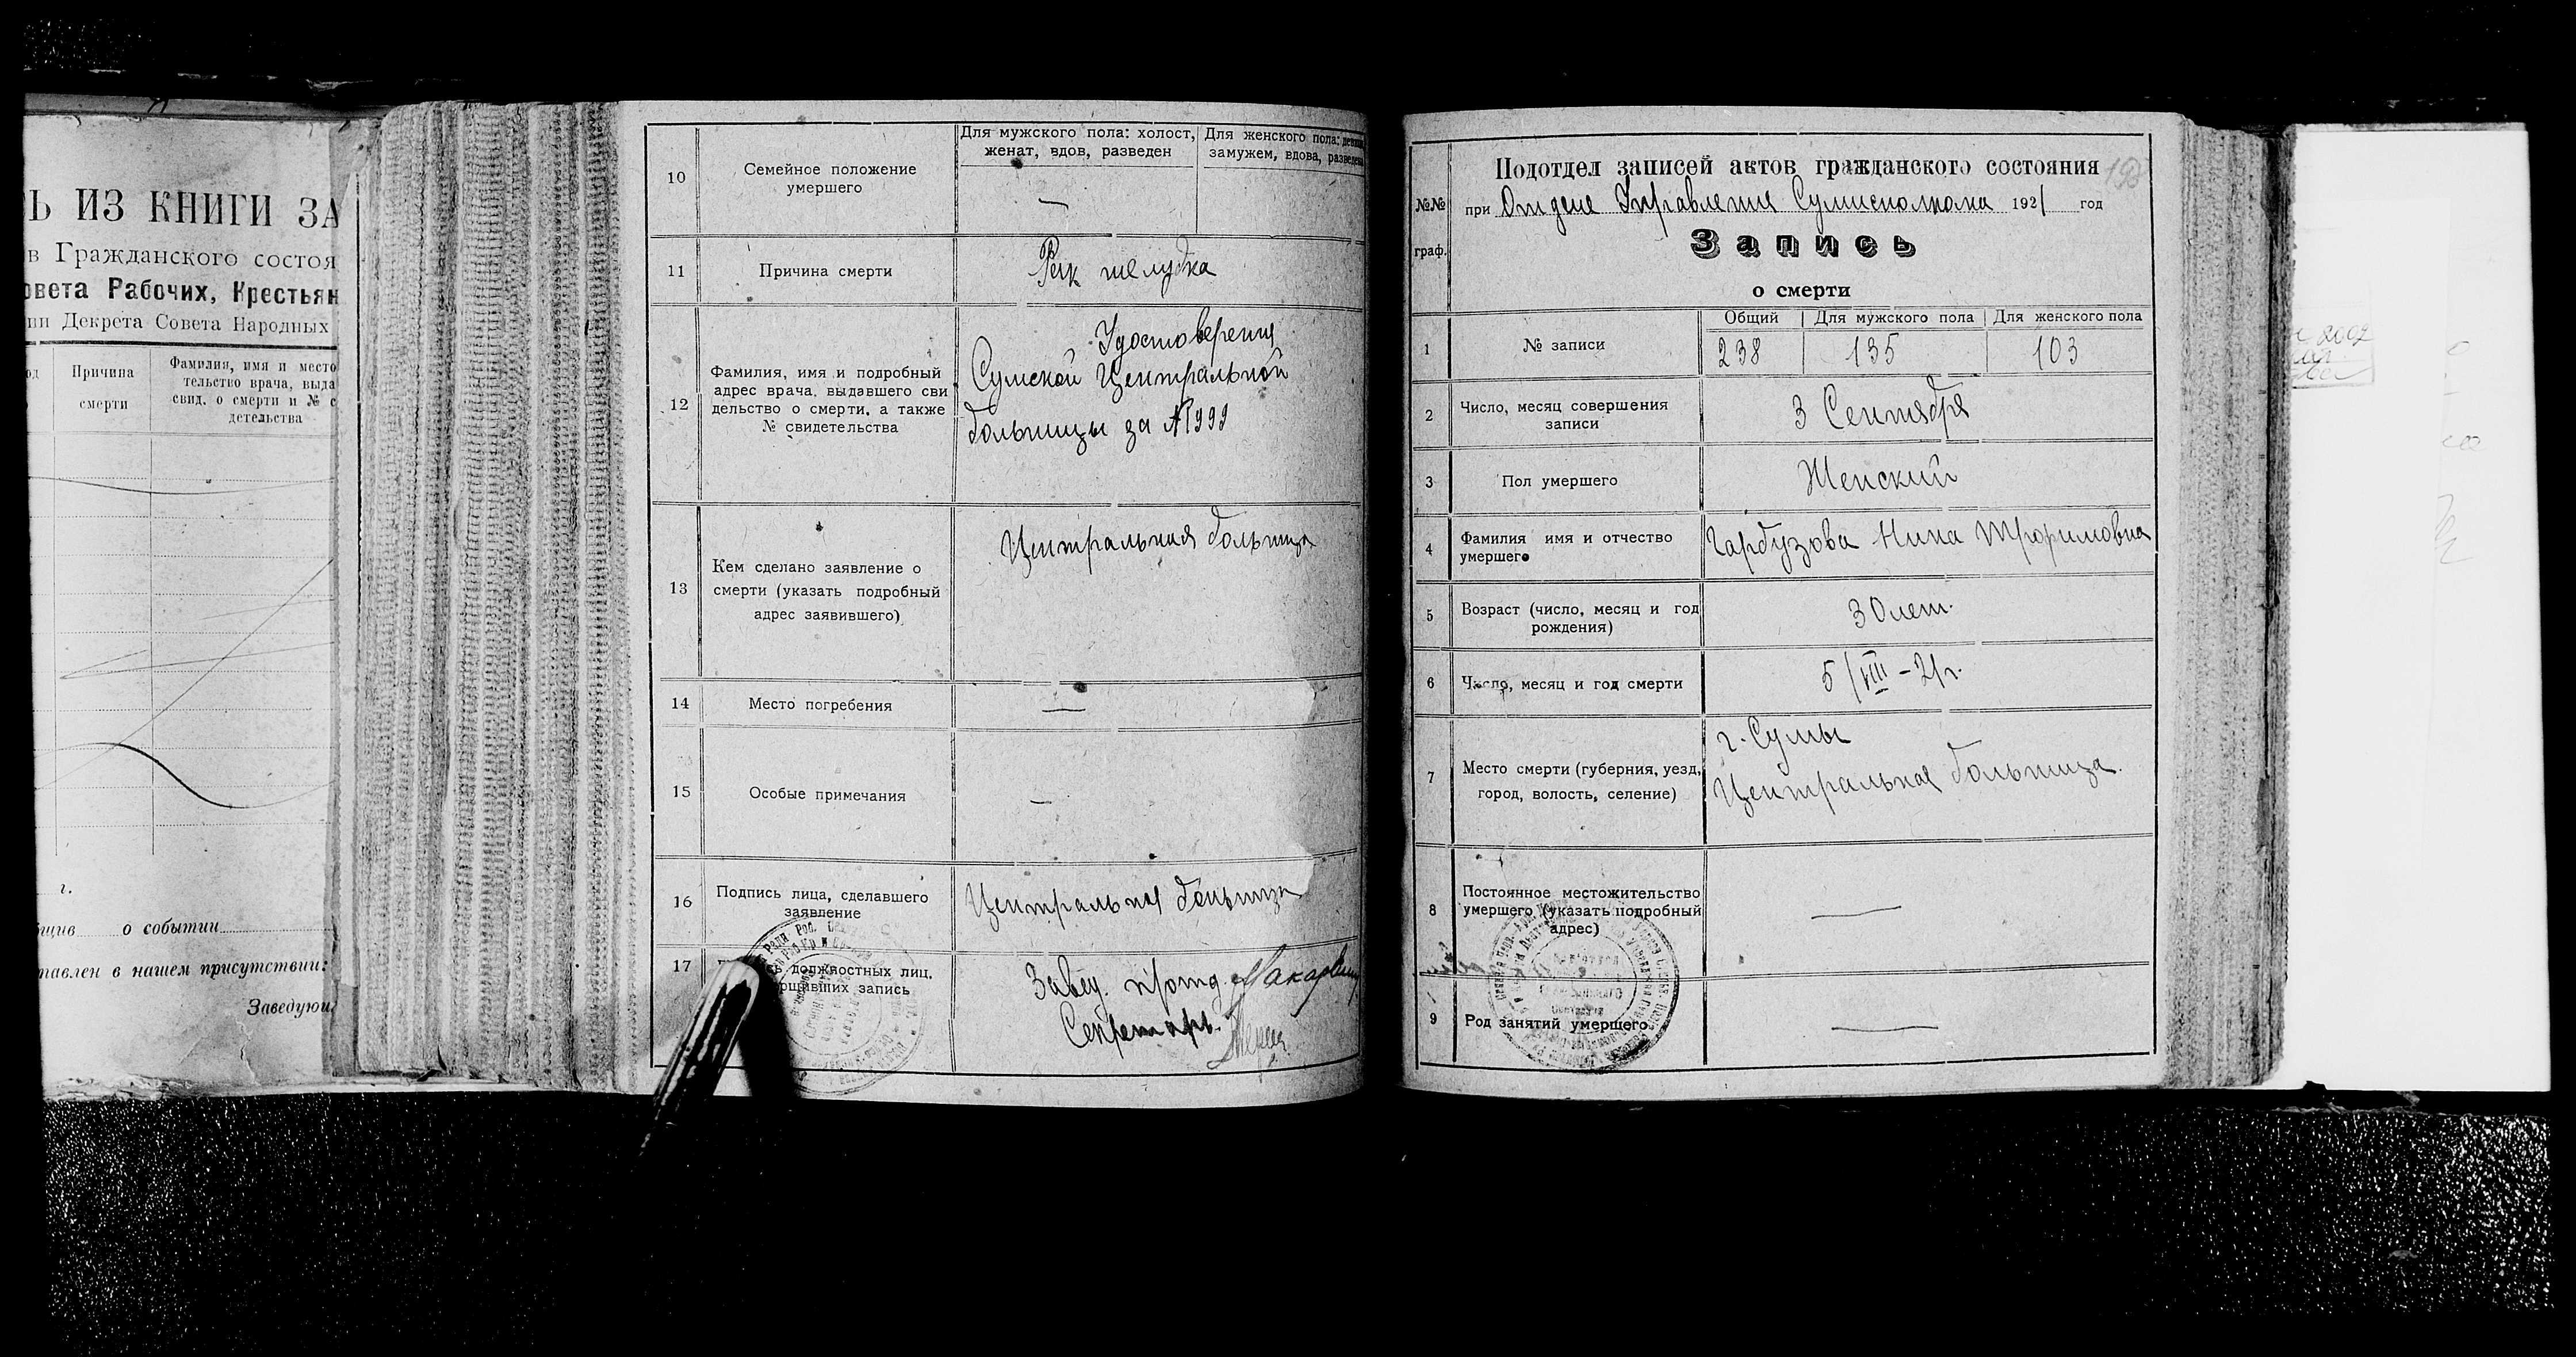 Ь ИЗ КНИГИ ЗА
в Гражданского состоя
овета Рабочих, Крестьян
Декрета Совета Народных
Причина
смерти
Фамилия, имя и место
тельство врача, выда
свид. о смерти и № с
детельства
г.
о событии
тавлен в нашем присутствии:
Заведующ
10
Семейное положение
умершего
Для мужского пола: холост,
женат, вдов, разведен
Для женского пола: девица,
замужем, вдова, разведена
—
11
Причина смерти
Рак желудка
12
Фамилия, имя и подробный
адрес врача, выдавшего сви
дельство о смерти, а также
№ свидетельства
Удостоверения
Сумской Центральной
больницы за №1999
13
Кем сделано заявление о
смерти (указать подробный
адрес заявившего)
Центральная больница
14
Место погребения
—
15
Особые примечания
—
16
Подпись лица, сделавшего
заявление
Центральная больница
17
должностных лиц,
запись
Завед. п/отд. Макаревич
Секретарь
№№
граф.
Подотдел записей актов гражданского состояния
190
при Отделе Управления Сумисполкома 1921 год
Запись
о смерти
1
№ записи
Общий
Для мужского пола
Для женского пола
238
135
103
2
Число, месяц совершения
записи
3 Сентября
3
Пол умершего
Женский
4
Фамилия имя и отчество
умершего
Гарбузова Нина Трофимовна
5
Возраст (число, месяц и год
рождения)
30 лет.
6
Число, месяц и год смерти
5/VIII – 21г.
7
Место смерти (губерния, уезд,
город, волость, селение)
г. Сумы
Центральная больница.
8
Постоянное местожительство
умершего (указать подробный
адрес)
—
9
Род занятий умершего
—